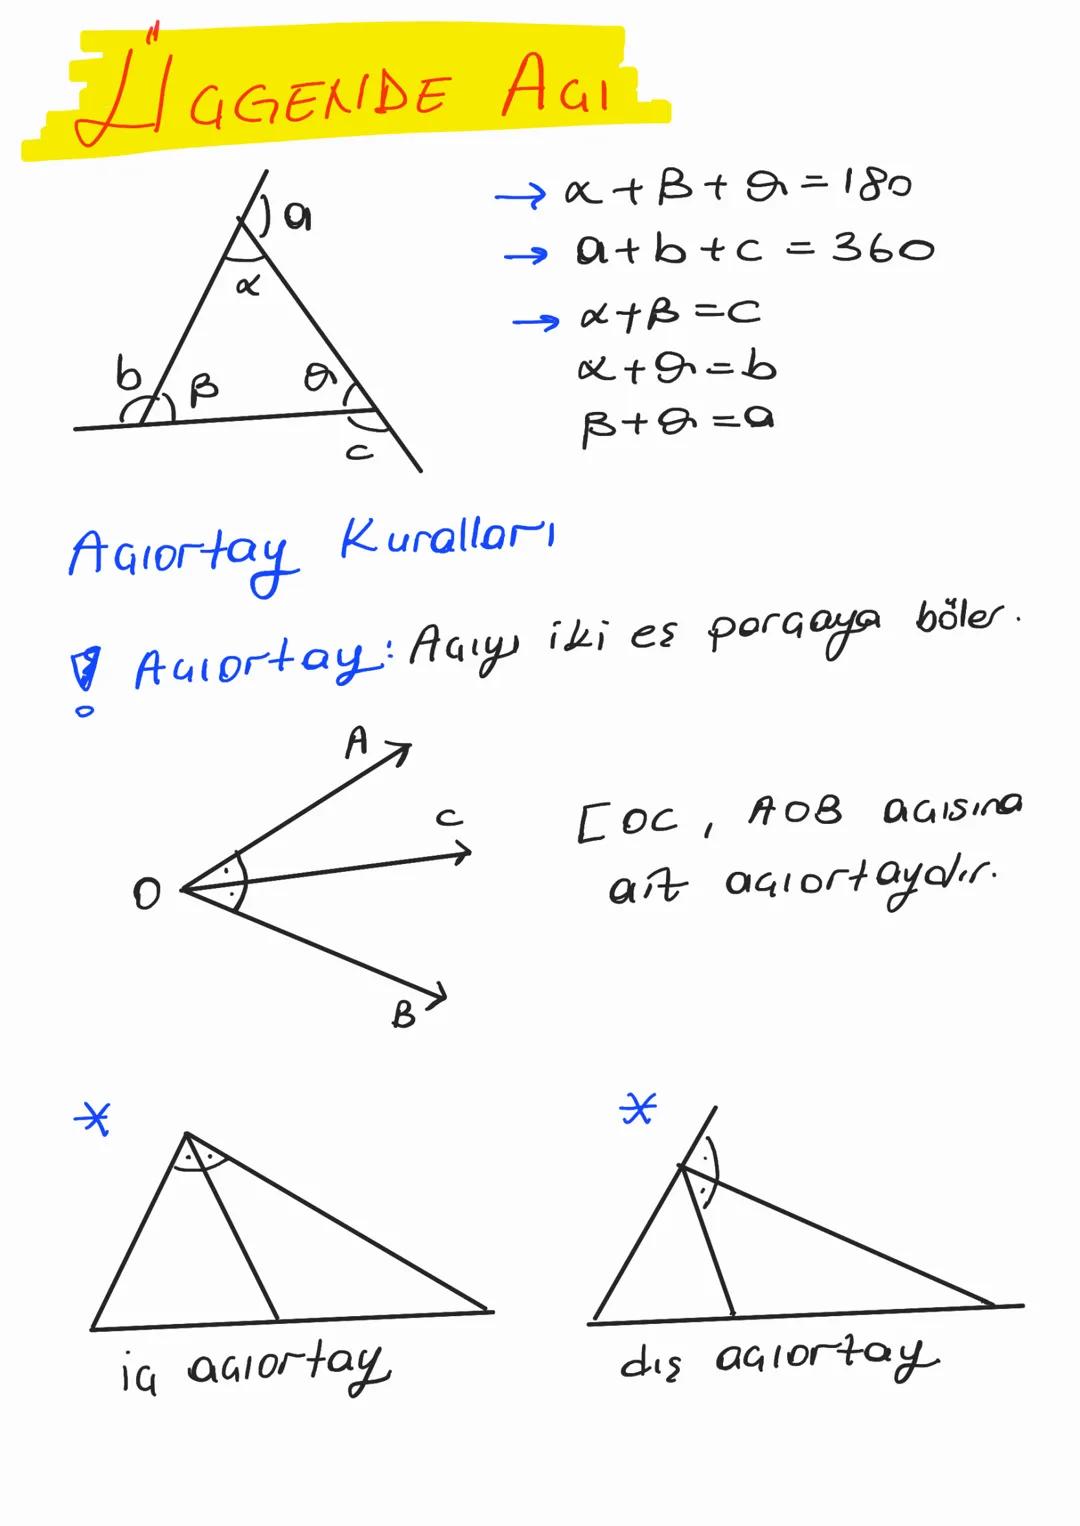 ÜÇGENDE AÇI
a
α
b
β
θ
c
→ α + β + θ = 180
→ a + b + c = 360
→ α + β = c
α + θ = b
β + θ = a
Açıortay Kuralları
! Açıortay: Açıyı iki eş parçaya böler.
A
C
O
B
[OC, AOB açısına
ait açıortaydır.
*
iç açıortay
*
dış açıortay